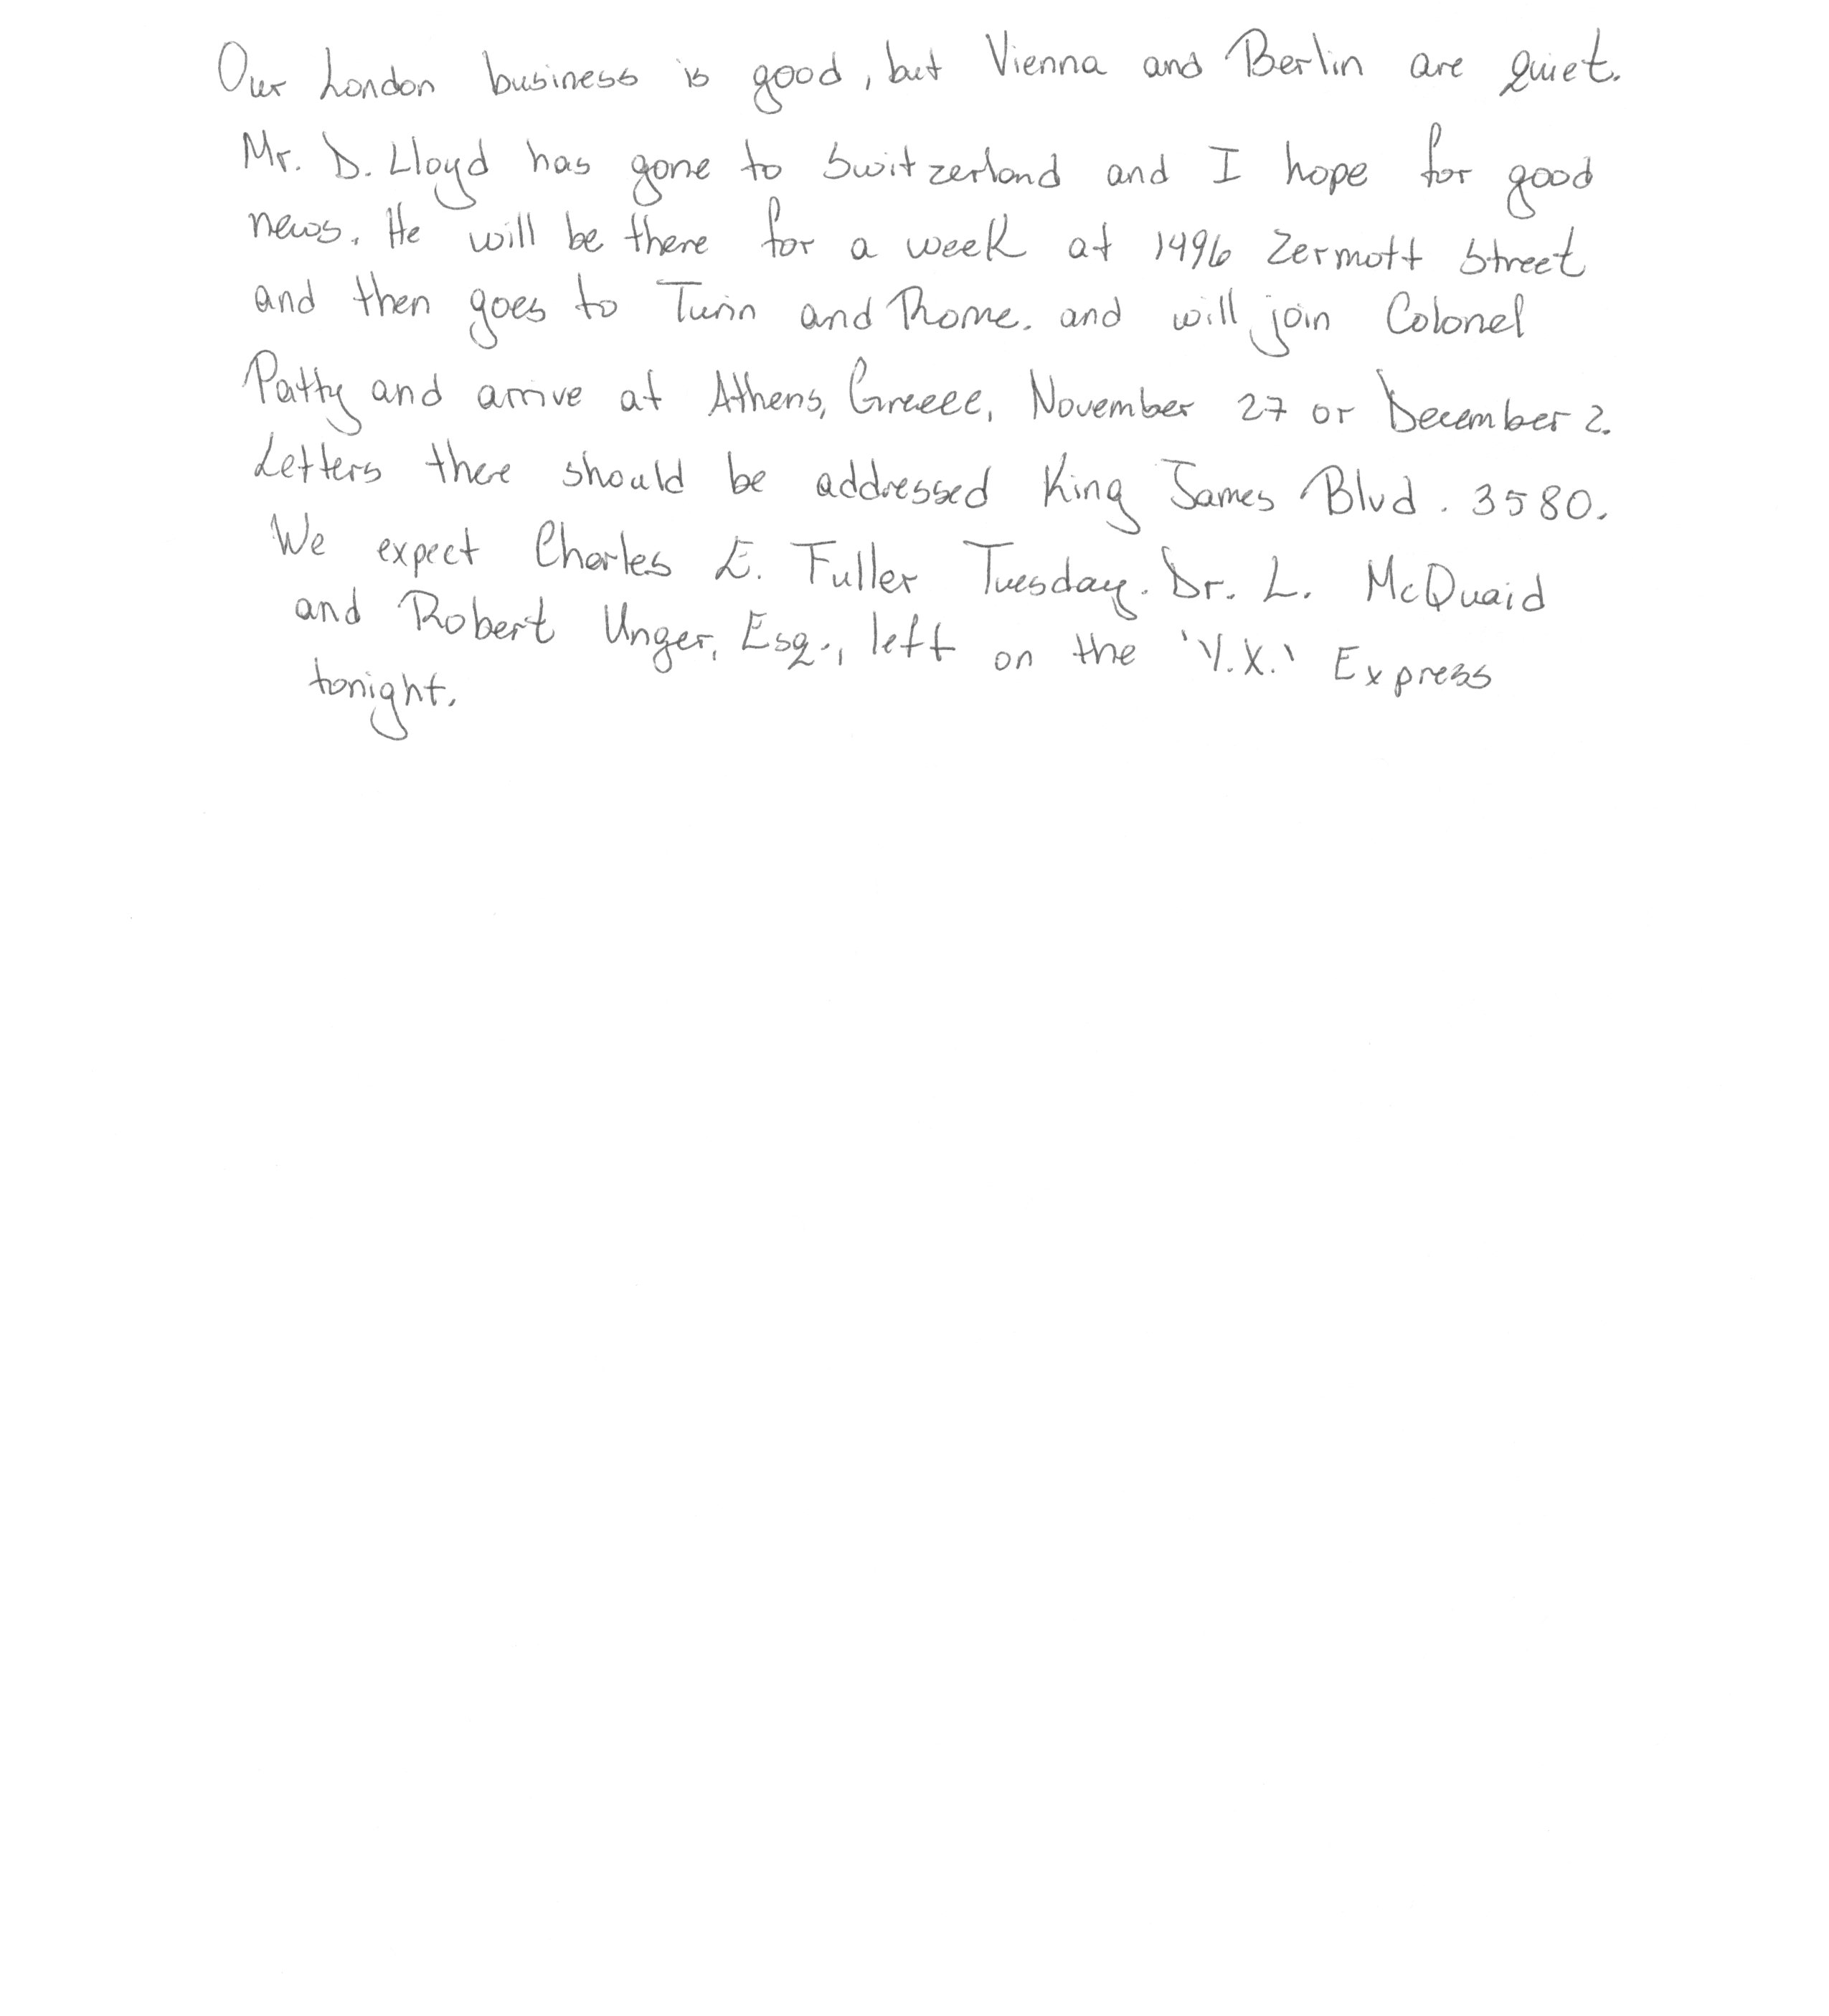 Our London business is good, but Vienna and Berlin are quiet.
Mr. D. Lloyd has gone to Switzerland and I hope for good
news. He will be there for a week at 1496 Zermott Street
and then goes to Turin and Rome. and will join Colonel
Patty and arrive at Athens, Greece, November 27 or December 2.
Letters there should be addressed King James Blvd. 3580.
We expect Charles E. Fuller Tuesday. Dr. L. McQuaid
and Robert Unger, Esq., left on the 'Y.X.' Express
tonight.